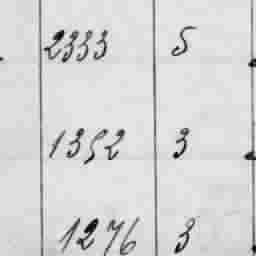 2333 5
1352 3
1276 3